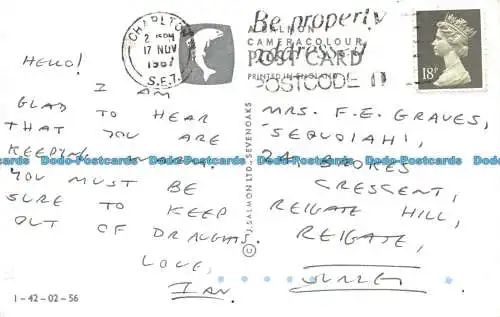 CHARLTON
2 15PM
17 NOV
1987
S.E.7.
Be properly
addressed
POSTCODE IT
A SALMON
CAMERACOLOUR
POST CARD
PRINTED IN ENGLAND
18P
HELLO!
I AM
GLAD TO HEAR
THAT YOU ARE
KEEPING WARM.
YOU MUST BE
SURE TO KEEP
OUT OF DRAUGHTS
LOVE,
IAN.
© J. SALMON LTD · SEVENOAKS
MRS. F. E. GRAVES,
'SEQUOIAH',
BROKES
CRESCENT,
REIGATE HILL,
REIGATE,
SURREY
1-42-02-56
Dodo-Postcards Dodo-Postcards Dodo-Postcards Dodo-Postcards Dodo-Postcards